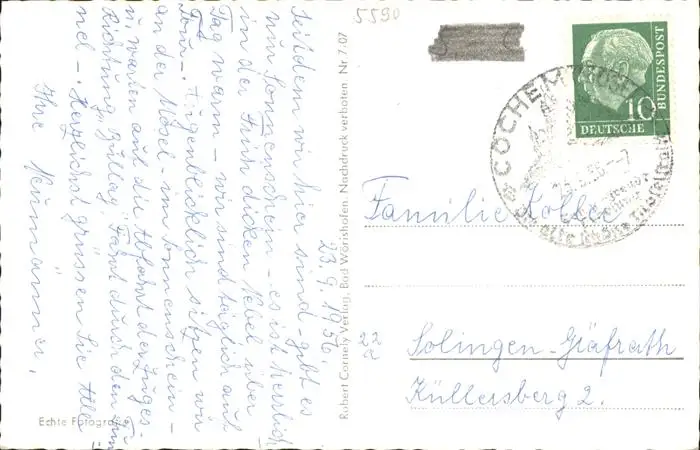 23. 9. 1956.
seitdem wir hier sind - gibt es
nur Sonnenschein - es ist herrlich
in der Früh dicken Nebel über
Tag warm - wir sind täglich auf
Tour -. Augenblicklich sitzen wir
an der Mosel - im Sonnenschein -
u. warten auf die Abfahrt des Zuges -
Richtung Fahrt durch den
nel -. Herzlichst grüssen Sie Alle
Ihre Neumänner.
Echte Fotografie
Rubert Cornely Verlag, Bad Wörishofen. Nachdruck verboten Nr 7/07
5590
10
DEUTSCHE
BUNDESPOST
COCHEM
Familie Koller
22a
Solingen - Gräfrath
Küllersberg 2.